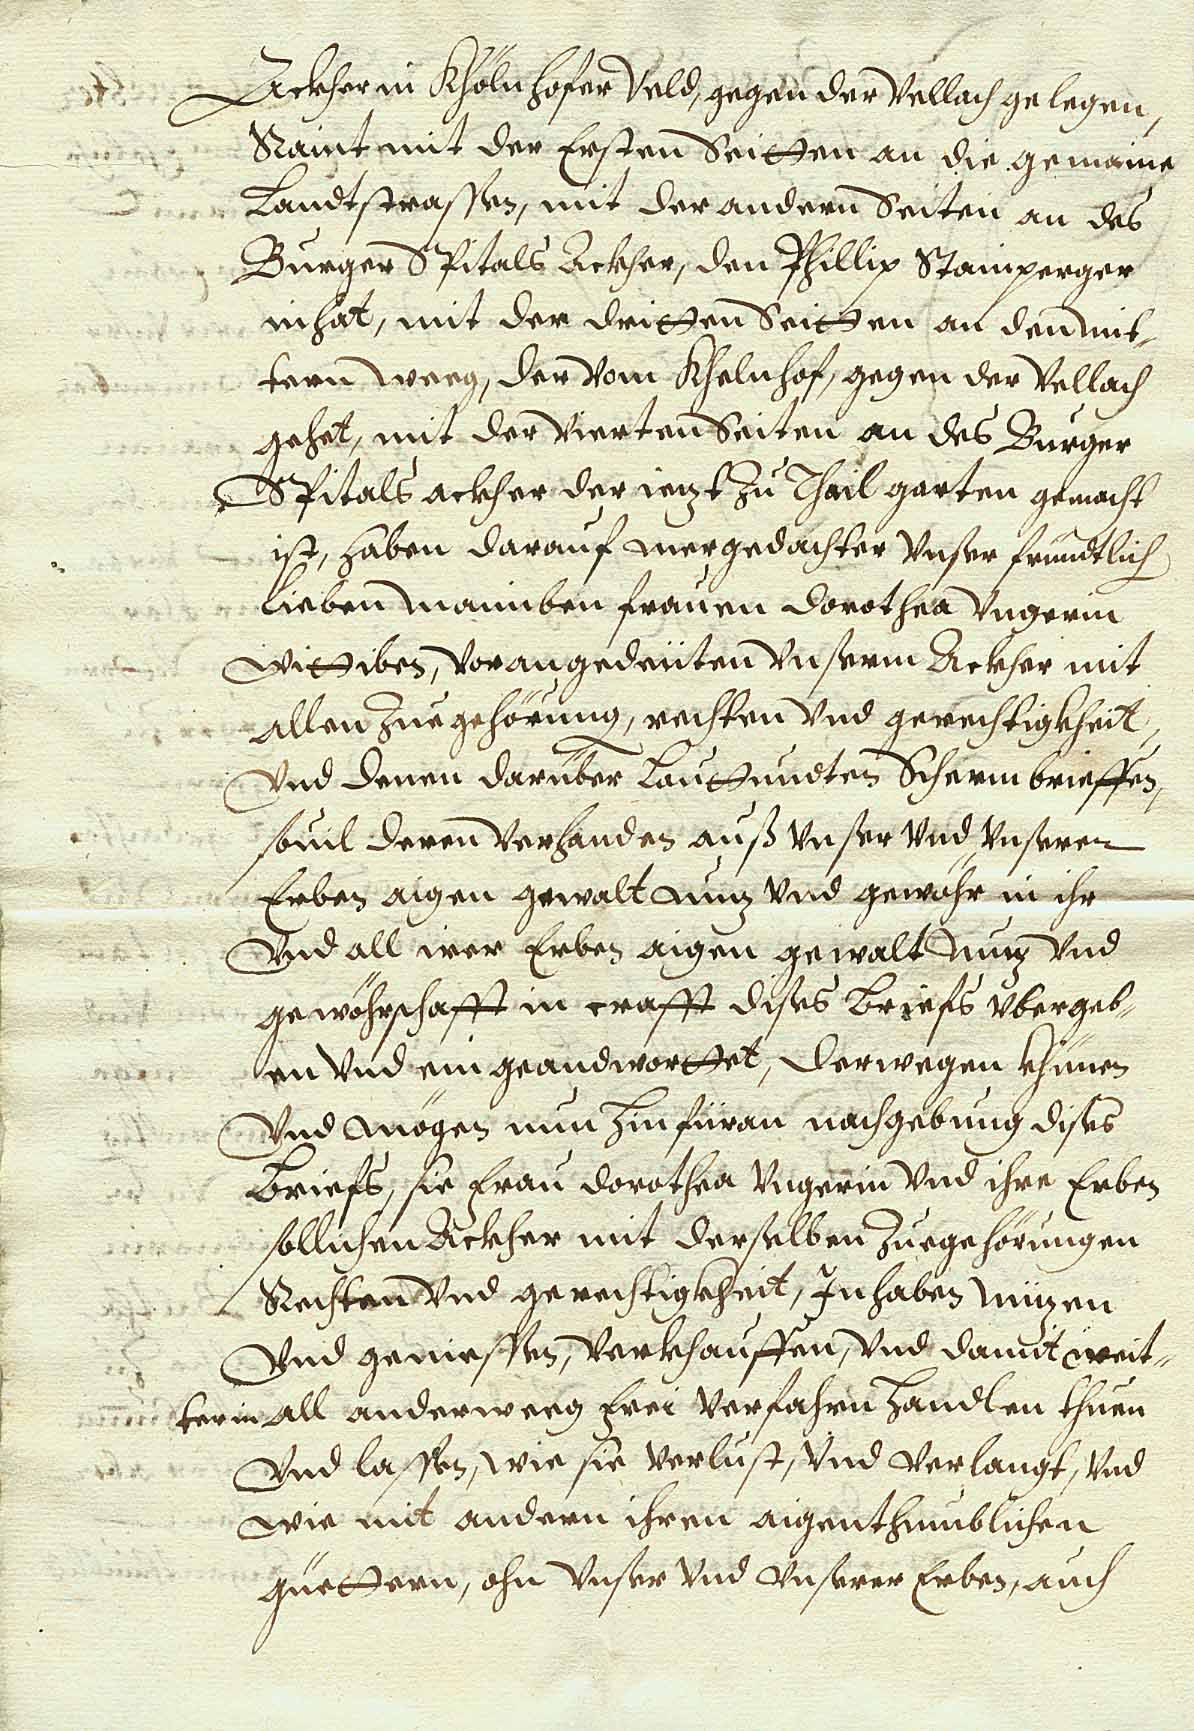 Ackher in Khölnhofer Veld, gegen der Vellach gelegen,
Raint mit der Ersten Seitten an die gemaine
Landtstrassen, mit der andern Seiten an des
Burger SPitals Ackher, den Phillip Stamperger
inhat, mit der dritten Seitten an den mit-
tern weeg, der vom Khelnhof, gegen der Vellach
gehet, mit der Vierten Seiten an des Burger
SPitals ackher der iezt zu Thail garten gemacht
ist, haben darauf mergedachter Vnser freundtlich
lieben maimben frauen Dorothea Vngerin
wittiben, Vorangedeüten Vnserm Ackher mit
allen Zuegehörung, rechten Vnd gerechtigkheit,
Vnd denen darüber Lauttundten Schermbrieffen,
souil deren Verhanden auß Vnser Vnd Vnserer
Erben aigen gewalt nuz Vnd gewöhr in ihr
Vnd all irer Erben aigen gewalt nuz Vnd
gewöhrschafft in crafft dises Briefs Vbergeb-
en Vnd eingeandworttet, Derwegen khünen
Vnd mögen nun hinfüran nachgebung dises
Briefs, sie Frau Dorothea Vngerin Vnd ihre Erben
sollichen Ackher mit derselben Zuegehörungen
Rechten Vnd gerechtigkheit, Inhaben nüzen
Vnd geniessen, Verkhauffen, Vnd damit weit-
ter in all anderweeg Frei Verfahrn handlen thuen
Vnd lassen, wie sie Verlust, Vnd Verlangt, Vnd
wie mit andern ihren aigenthumblichen
güettern, ohn Vnser Vnd Vnserer Erben, auch